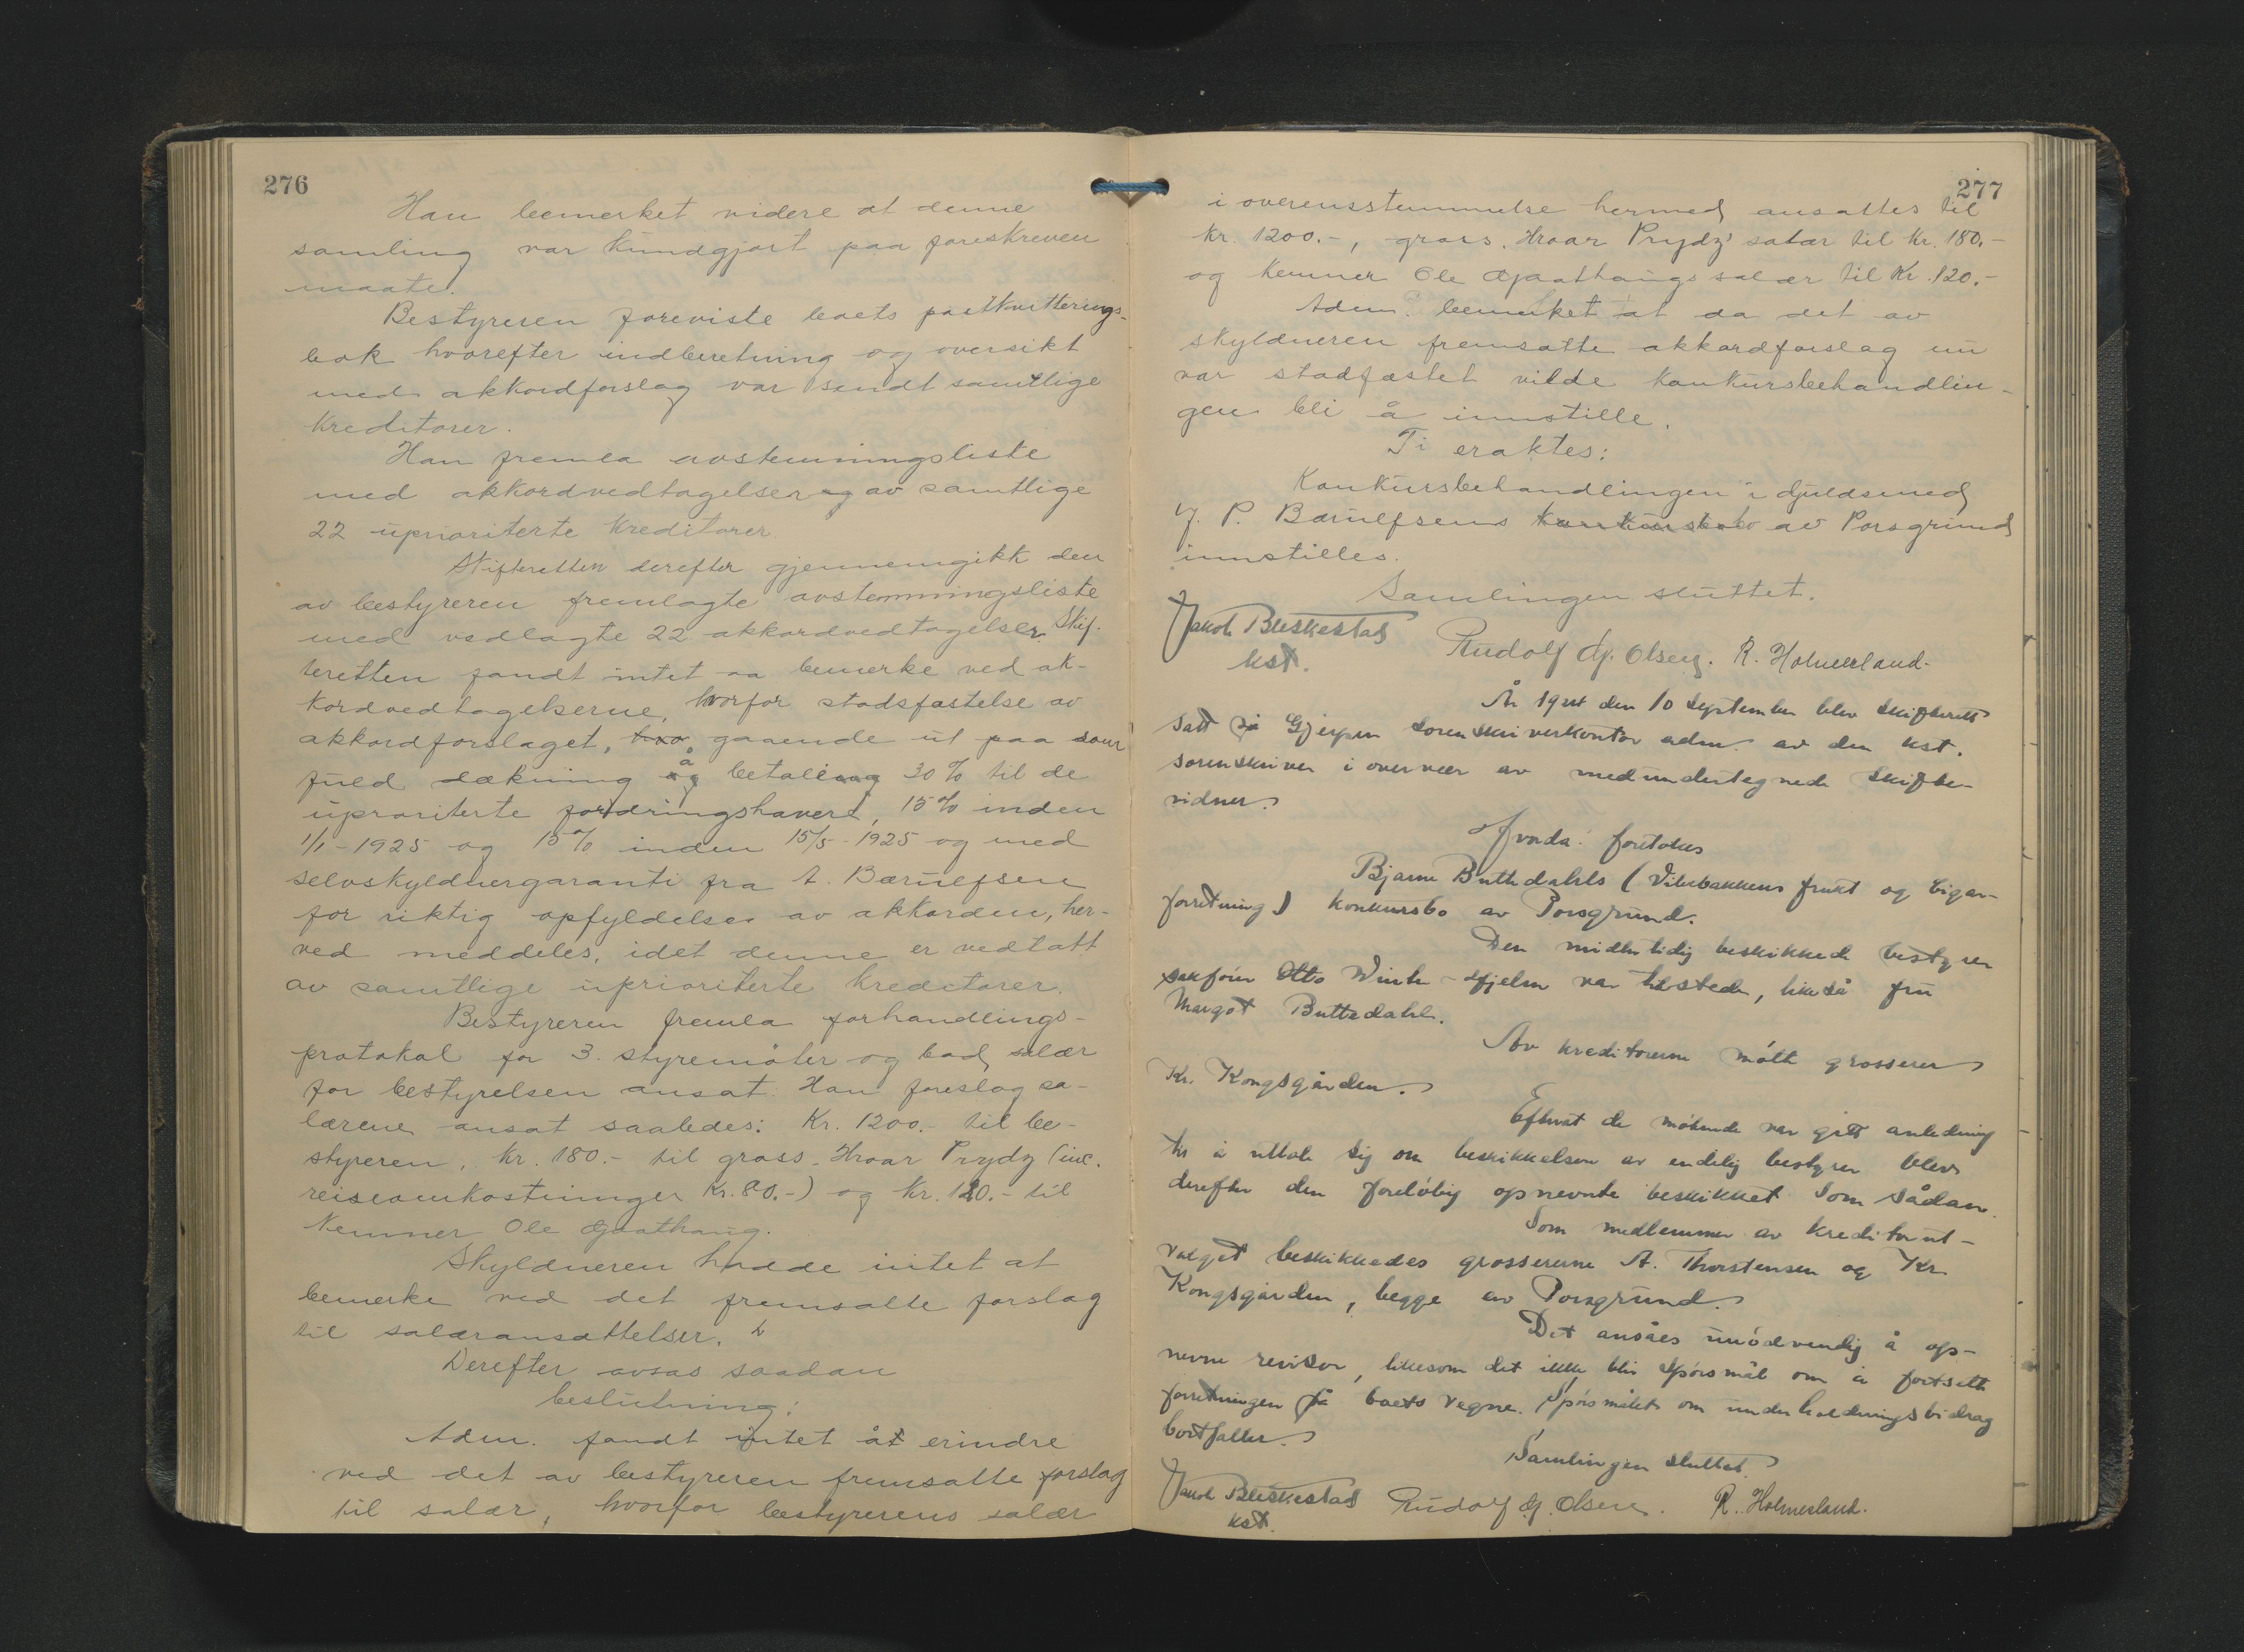 276
Han bemerket videre at denne
samling var kundgjort paa foreskreven
maate.
Bestyreren foreviste boets postkvitterings-
bok hvorefter indberetning og oversikt
med akkordforslag var sendt samtlige
kreditorer.
Han fremla avstemningsliste
med akkordvedtagelser av samtlige
22 uprioriterte kreditorer
Skifteretten derefter gjennemgikk den
av bestyreren fremlagte avstemningsliste
med vedlagte 22 akkordvedtagelser. Skif-
teretten fandt intet aa bemerke ved ak-
kordvedtagelserne, hvorfor stadsfæstelse av
akkordforslaget, gaaende ut paa
fuld dækning å betale 30% til de
uprioriterte fordringshavere, 15% inden
1/1-1925 og 15% inden 15/5-1925 og med
selvskyldnergaranti fra A. Barulfsen
for riktig opfyldelse av akkorden, her-
ved meddeles, idet denne er vedtatt
av samtlige uprioriterte kreditorer.
Bestyreren fremla forhandlings-
protokol for 3. styremøter og bad salær
for bestyrelsen ansat. Han foreslog sa-
lærene ansat saaledes: Kr. 1200.- til be-
styreren, kr. 180.- til gross. Hroar Prydz (inc.
reiseomkostninger kr. 80.-) og kr. 120.- til
kemner Ole Gaathaug.
Skyldneren hadde intet at
bemerke ved det fremsatte forslag
til salæransættelser.
Derefter avsas saadan
beslutning:
Adm. fandt intet åt erindre
ved det av bestyreren fremsatte forslag
til salær, hvorfor bestyrerens salær
277
i overensstemmelse hermed ansattes til
kr. 1200.-, gross. Hroar Prydz' salær til kr. 180.-
og kemner Ole Gaathaugs salær til kr. 120.-
Adm. bemerket at da det av
skyldneren fremsatte akkordforslag nu
var stadfæstet vilde konkursbehandlin-
gen bli å innstille.
Ti eraktes:
Konkursbehandlingen i guldsmed
J. P. Barulfsens konkursbo av Porsgrund
innstilles.
Samlingen sluttet.
Jakob Bleskestad
kst.
Rudolf G. Olsen. R. Holmerland.
År 1924 den 10 september blev skifterett
satt på Gjerpen sorenskriverkontor adm. av den kst.
sorenskriver i overvær av medundertegnede skifte-
vidner.
Hvorda foretokes
Bjarne Buttedahls (Vibebakkens frukt og cigar-
forretning) konkursbo av Porsgrund.
Den midlertidig beskikkede bestyrer
sakfører Otto Winther-Hjelm var tilstede, likeså fru
Margot Buttedahl.
Av kreditorerne møtte grosserer
Kr. Kongsgården.
Efterat de møtende var gitt anledning
til å uttale sig om beskikkelsen av endelig bestyrer blev
derefter den foreløbig opnevnte beskikket som sådan.
Som medlemmer av kreditorut-
valget beskikkedes grossererne A. Thorstensen og Kr.
Kongsgården, begge av Porsgrund.
Det ansåes unødvendig å op-
nevne revisor, likesom det ikke blir spørsmål om å fortsette
forretningen på boets vegne. Spørsmålet om underholdningsbidrag
bortfaller.
Samlingen sluttet.
Jakob Bleskestad
kst.
Rudolf G. Olsen. R. Holmerland.